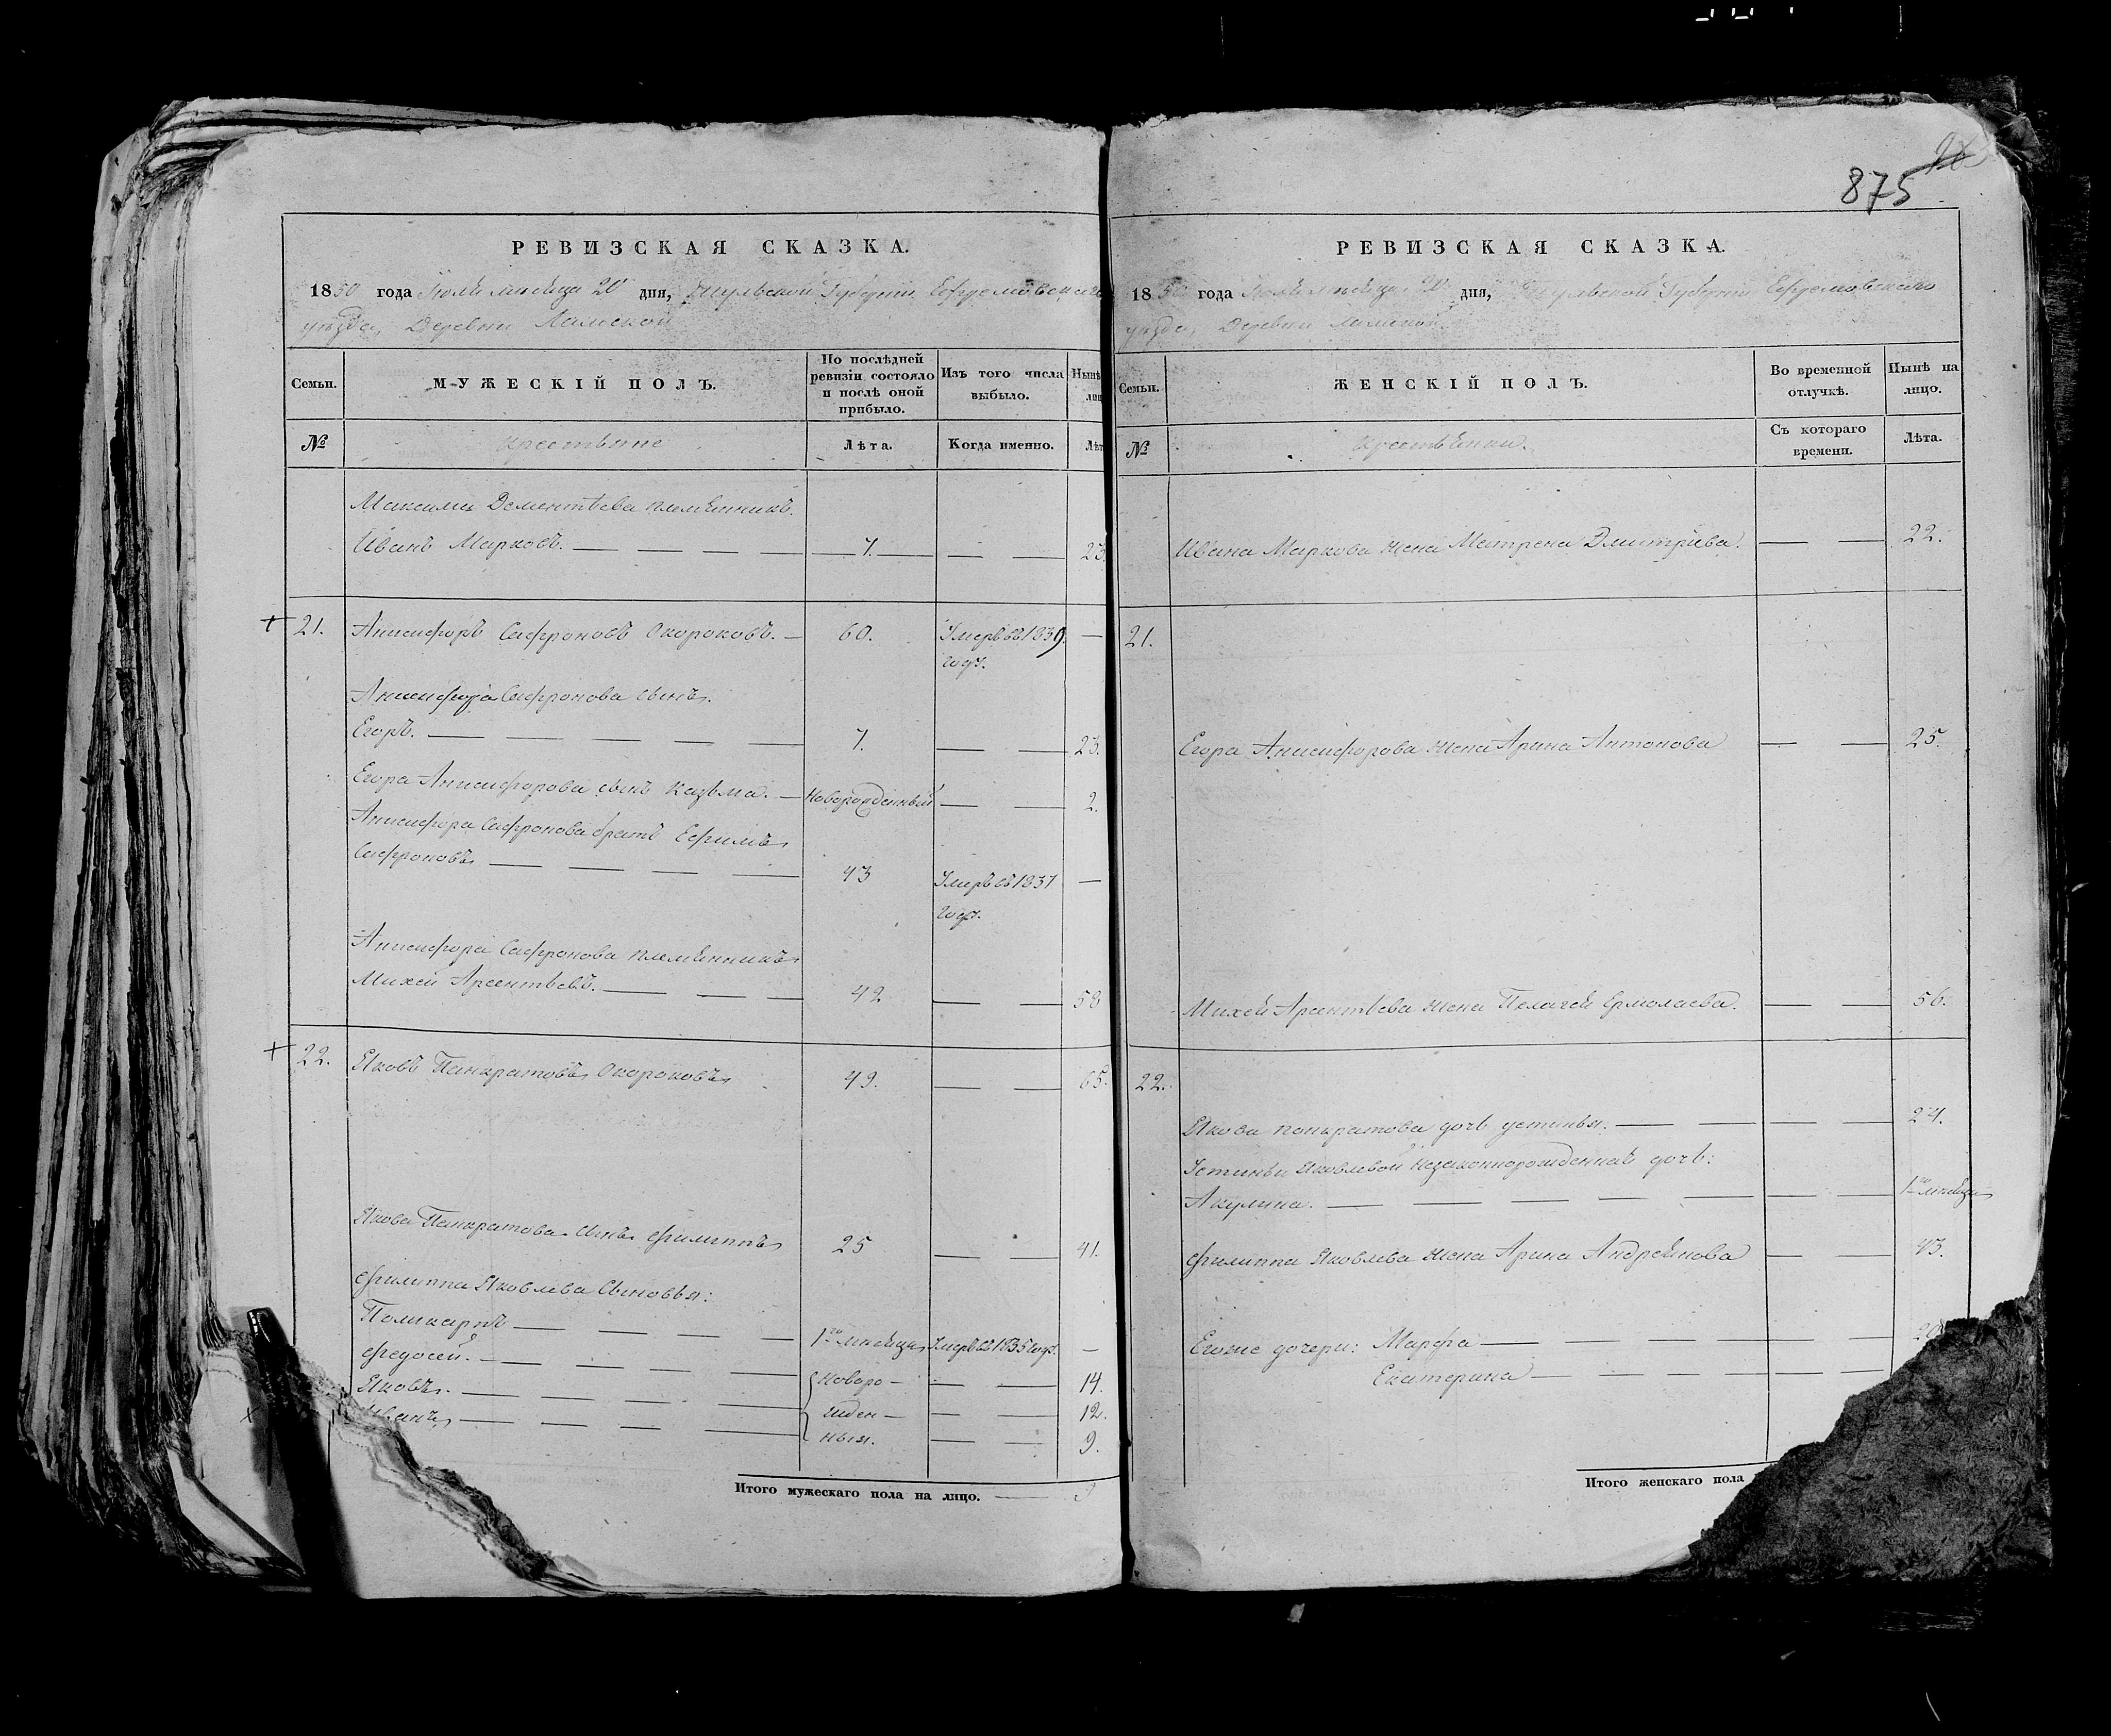 875
РЕВИЗСКАЯ СКАЗКА.
1850 года Июля мѣсяца 20 дня, Тульской Губерніи Ефремовскаго
уѣзда, Деревни Ламской
Семьи.
МУЖЕСКІЙ ПОЛЪ.
По послѣдней ревизіи состояло и послѣ оной прибыло.
Изъ того числа выбыло.
Нынѣ
лиц
№
Крестьяне
Лѣта.
Когда именно.
Лѣт
Максима Дементьева племянникъ.
Иванъ Марковъ. — 7. — 23
21. Анисифоръ Сафроновъ Окороковъ. — 60. Умеръ въ 1839 —
году.
Анисифора Сафронова сынъ.
Егоръ. — 7. — 23.
Егора Анисифорова сынъ Казьма. — Новорожденный — 2.
Анисифора Сафронова братъ Ефимъ
Сафроновъ — 43 Умеръ въ 1837 —
году.
Анисифора Сафронова племянникъ
Михей Арсентьевъ. — 42 — 58
22. Яковъ Панкратовъ Окороковъ 49. — 65.
Якова Панкратова сынъ Филиппъ 25 — 41.
Филиппа Яковлева сыновья:
Поликарпъ — 1го мѣсяца Умеръ въ 1835 году. —
Федосей. — Новоро — 14.
Яковъ. — жден — 12.
Иванъ — ныя. — 9.
Итого мужескаго пола на лицо. — 9
РЕВИЗСКАЯ СКАЗКА.
1850 года Июля мѣсяца 20 дня, Тульской Губерніи Ефремовскаго
уѣзда, Деревни Ламской
Семьи.
ЖЕНСКІЙ ПОЛЪ.
Во временной отлучкѣ.
Нынѣ на лицо.
№
Крестьянки.
Съ котораго времени.
Лѣта.
Ивана Маркова жена Матрена Дмитріева. — 22.
21.
Егора Анисифорова жена Арина Антонова — 25.
Михей Арсентьева жена Пелагей Ермолаева. — 56.
22.
Якова Понкратова дочь устинья. — 24.
Устиньи Яковлевой незаконнорожденная дочь:
Акулина. — 1го мѣсяца
Филиппа Яковлева жена Арина Андреянова — 43.
Егоже дочери: Марфа —
Екатерина —
Итого женскаго пола